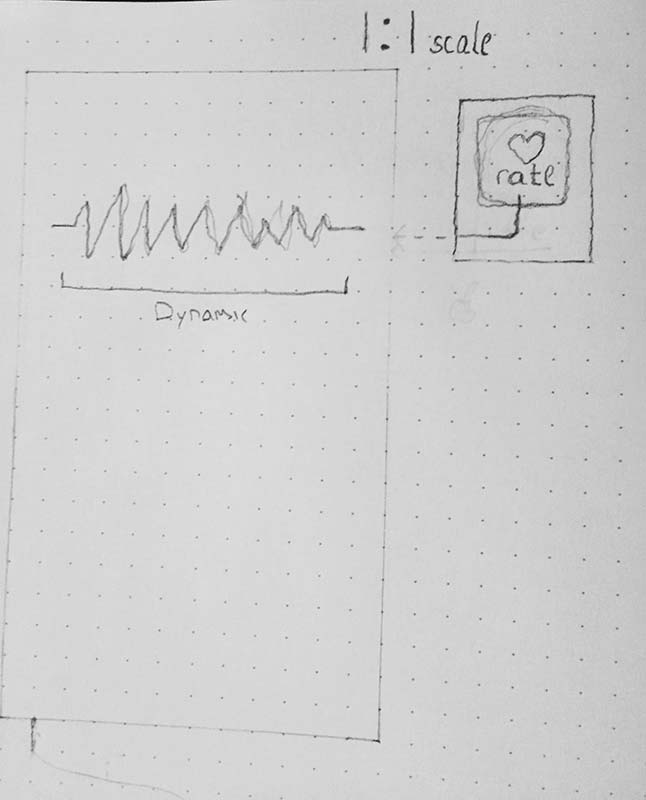 1:1 scale
rate
Dynamic